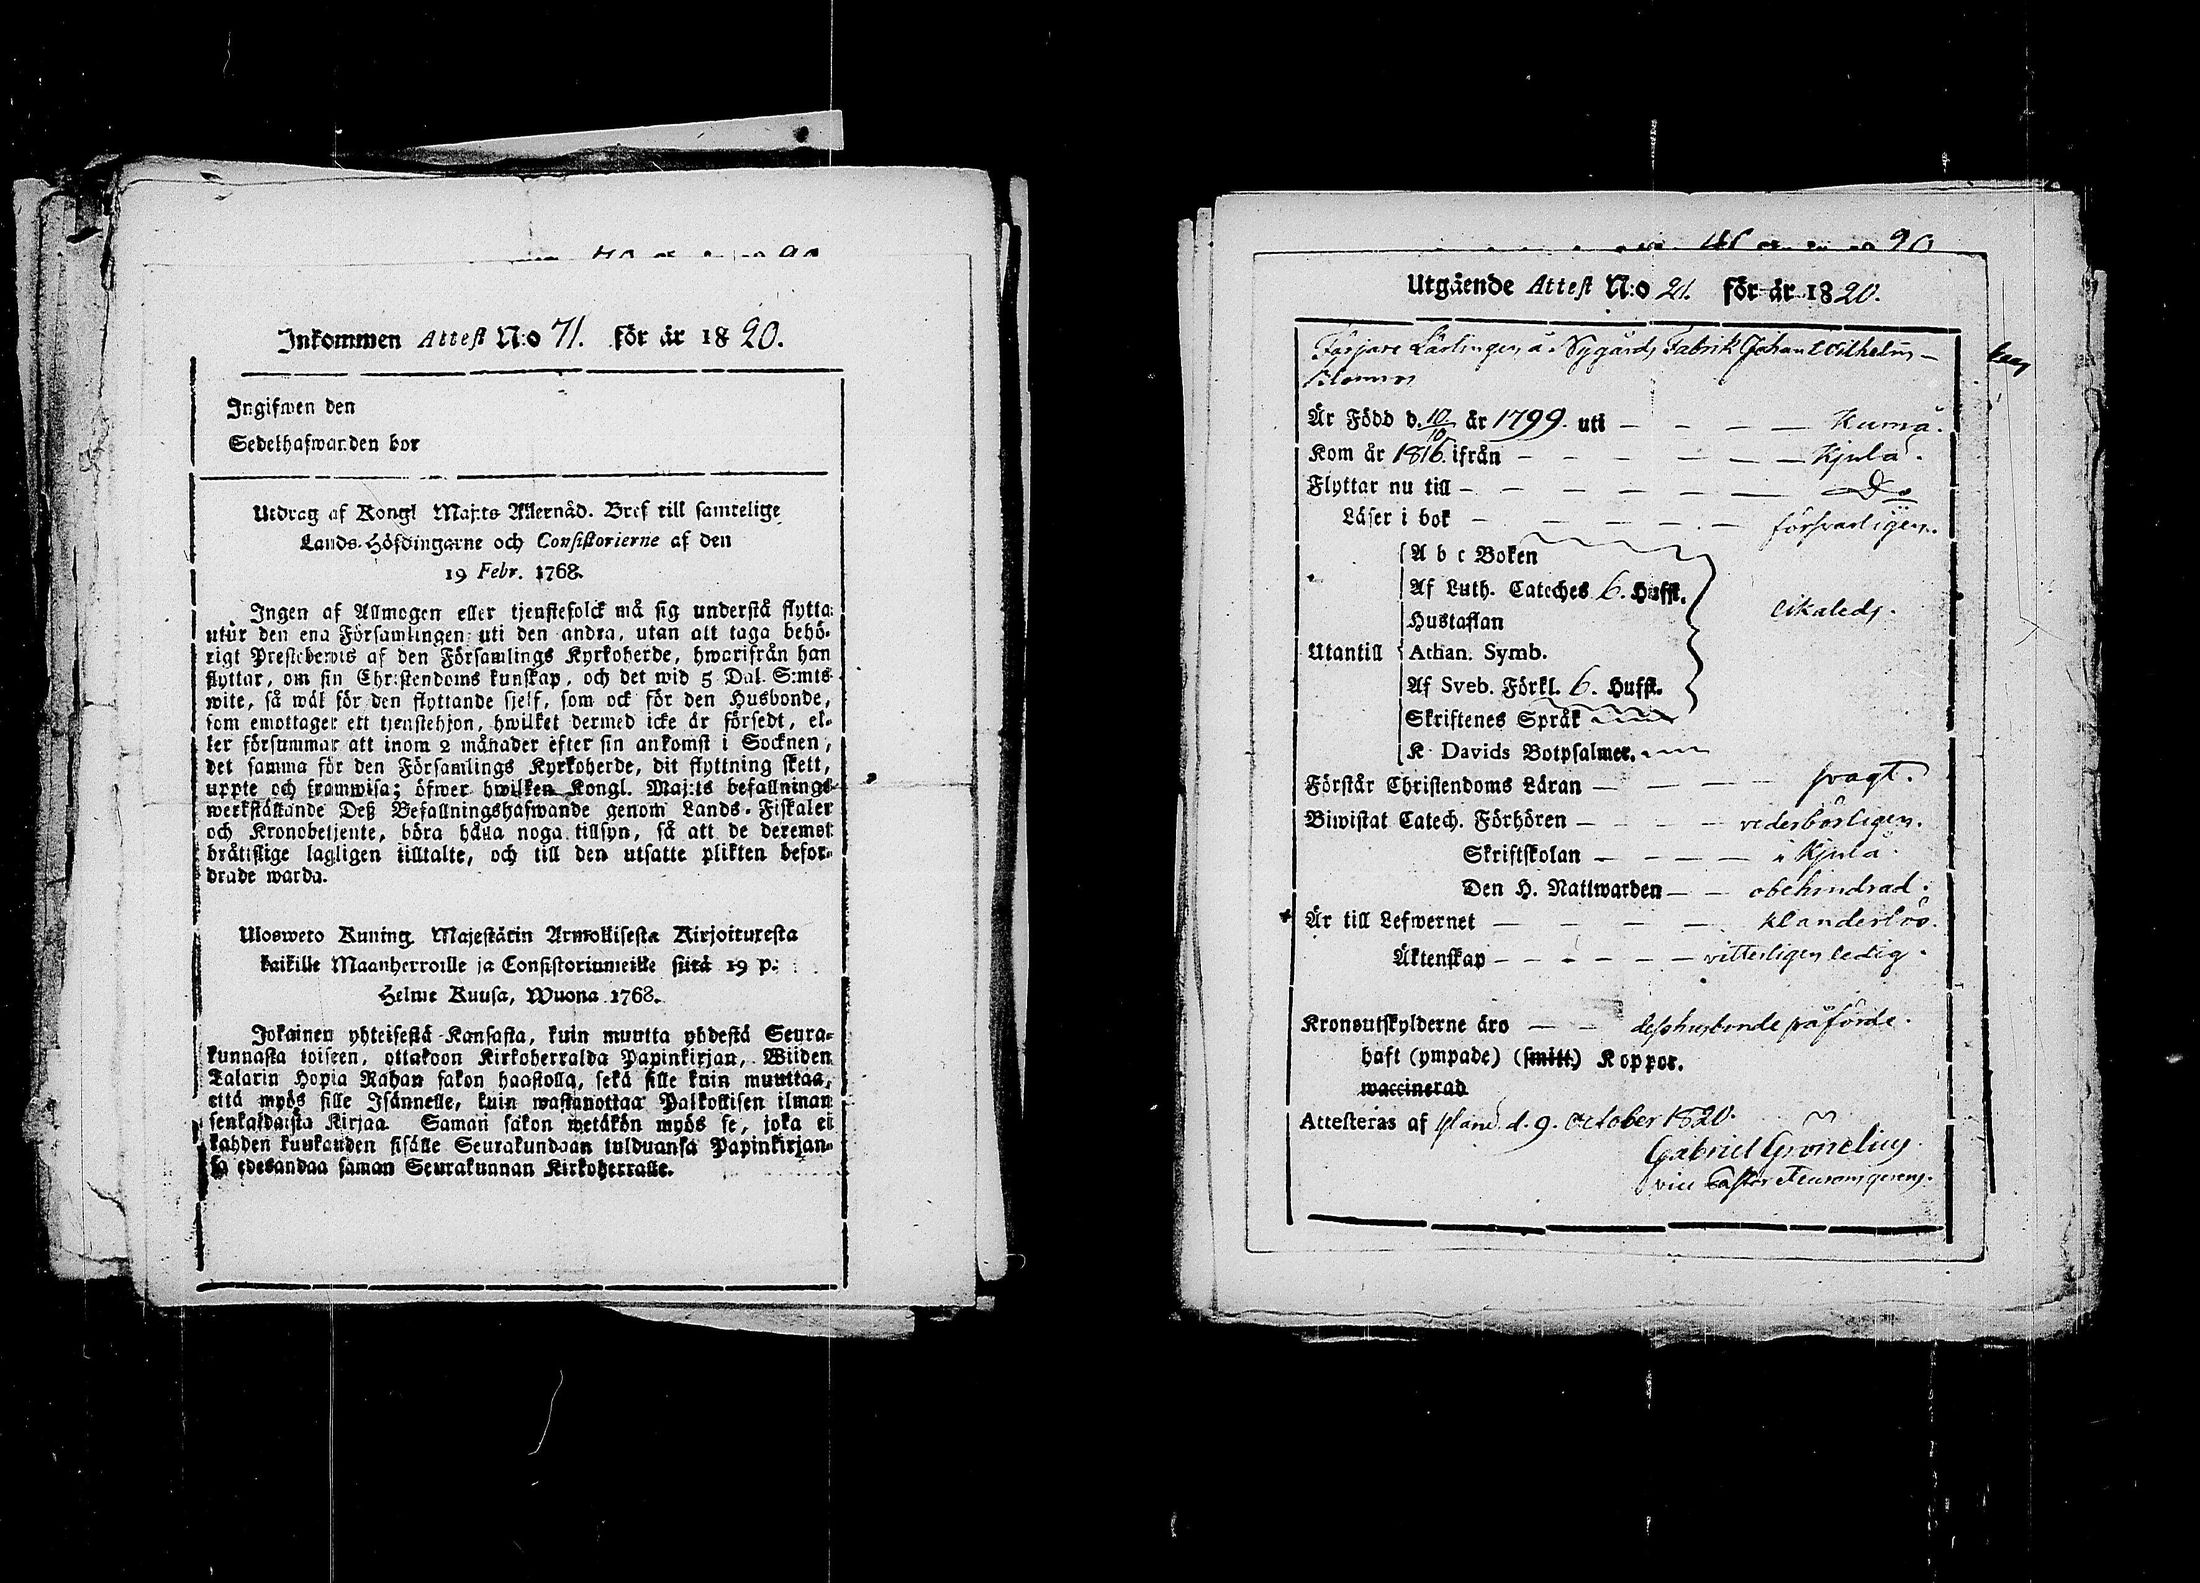 Inkommen Attest N:o 71. för år 1820.
Ingifwen den
Sedelhafwanden bor
Utdrag af Kongl Maj:ts Allernåd. Bref till samtelige
Lands-Höfdingarne och Consistorierne af den
19 Febr. 1768.
Ingen af Allmogen eller tjenstefolck må sig understå flytta
utur den ena Församlingen uti den andra, utan att taga behö-
rigt Prestebewis af den Församlings Kyrkoherde, hwarifrån han
flyttar, om sin Christendoms kunskap, och det wid 5 Dal. S:mts
wite, så wäl för den flyttande sjelf, som ock för den Husbonde,
som emottager ett tjenstehjon, hwilket dermed icke är försedt, el-
ler försummar att inom 2 månader efter sin ankomst i Socknen,
det samma för den Församlings Kyrkoherde, dit flyttning skett,
uppte och framwisa; öfwer hwilken Kongl. Maj:ts befallnings
werkställande Deß Befallningshafwande genom Lands-Fiskaler
och Kronobetjente, böra hålla noga tillsyn, så att de deremot
bråtislige lagligen tilltalte, och till den utsatte plikten befor-
drade warda.
Ulosweto Kuning. Majestätin Armollisesta Kirjoituxesta
kaikille Maanherroille ja Consistoriumeille siitä 19 p:
Helme Kuusa, Wuona 1768.
Jokainen yhteisestä Kansasta, kuin muutta yhdestä Seura-
kunnasta toiseen, ottakoon Kirkoherralda Papinkirjan, Wiiden
Talarin Hopia Rahan sakon haastolla, sekä sille kuin muuttaa,
että myös sille Isännelle, kuin wastanottaa Palkollisen ilman
senkaldaista Kirjaa. Saman sakon wetäkön myös se, joka ei
kahden kuukauden sisälle Seurakundaan tulduansa Papinkirjan-
sa edesandaa saman Seurakunnan Kirkoherralle.
Utgående Attest N:o 21. för år 1820.
Färjare Lärlingen å Nygårds Fabrik Johan Wilhelm
Är Född d. 10/10 år 1799. uti — — — — Kumå.
Kom år 1816. ifrån — — — — — — Kjulå.
Flyttar nu till — — — — — — — Do
Läser i bok — — — — — försvarligen.
A b c Boken
Af Luth. Cateches 6. Hufst.
Hustaflan
likaledes.
Utantill Athan. Symb.
Af Sveb. Förkl. 6. Hufst.
Skriftenes Språk
K. Davids Botpsalmer.
Förstår Christendoms Läran — — — — svagt.
Biwistat Catech. Förhören — — — — vederbörligen.
Skriftskolan — — — — i Kjulå.
Den H. Nattwarden — — obehindrad.
Är till Lefwernet — — — — — klanderlös.
Äktenskap — — — — — — vitterligen ledig.
Kronoutskylderne äro — — dess husbonde påförde.
haft (ympade) (smitt.) Koppor.
waccinerad
Attesteras af Yläne d. 9. October 1820.
Gabriel Grönelius
vice Pastor